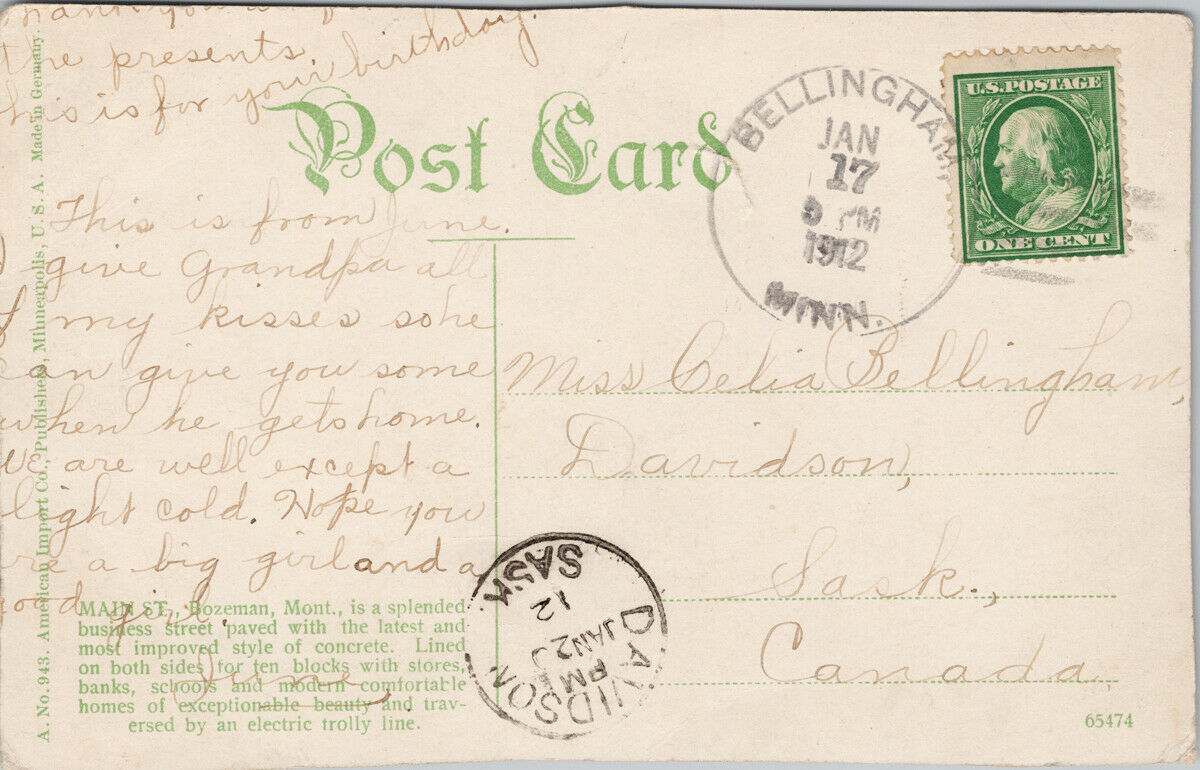 thank you
the presents
this is for your birthday.
Post Card
This is from June.
I give Grandpa all
of my kisses so he
can give you some
when he gets home.
We are well except a
slight cold. Hope you
are a big girl and a
good girl.
June
MAIN ST., Bozeman, Mont., is a splended
business street paved with the latest and
most improved style of concrete. Lined
on both sides for ten blocks with stores,
banks, schools and modern comfortable
homes of exceptionable beauty and trav-
ersed by an electric trolly line.
A. No. 943. American Import Co., Publishers, Minneapolis, U. S. A. Made in Germany.
BELLINGHAM,
JAN
17
PM
1912
MINN.
U.S. POSTAGE
ONE CENT
Miss Celia Bellingham,
Davidson,
Sask.,
Canada
DAVIDSON
PM
JAN 2
12
SASK
65474